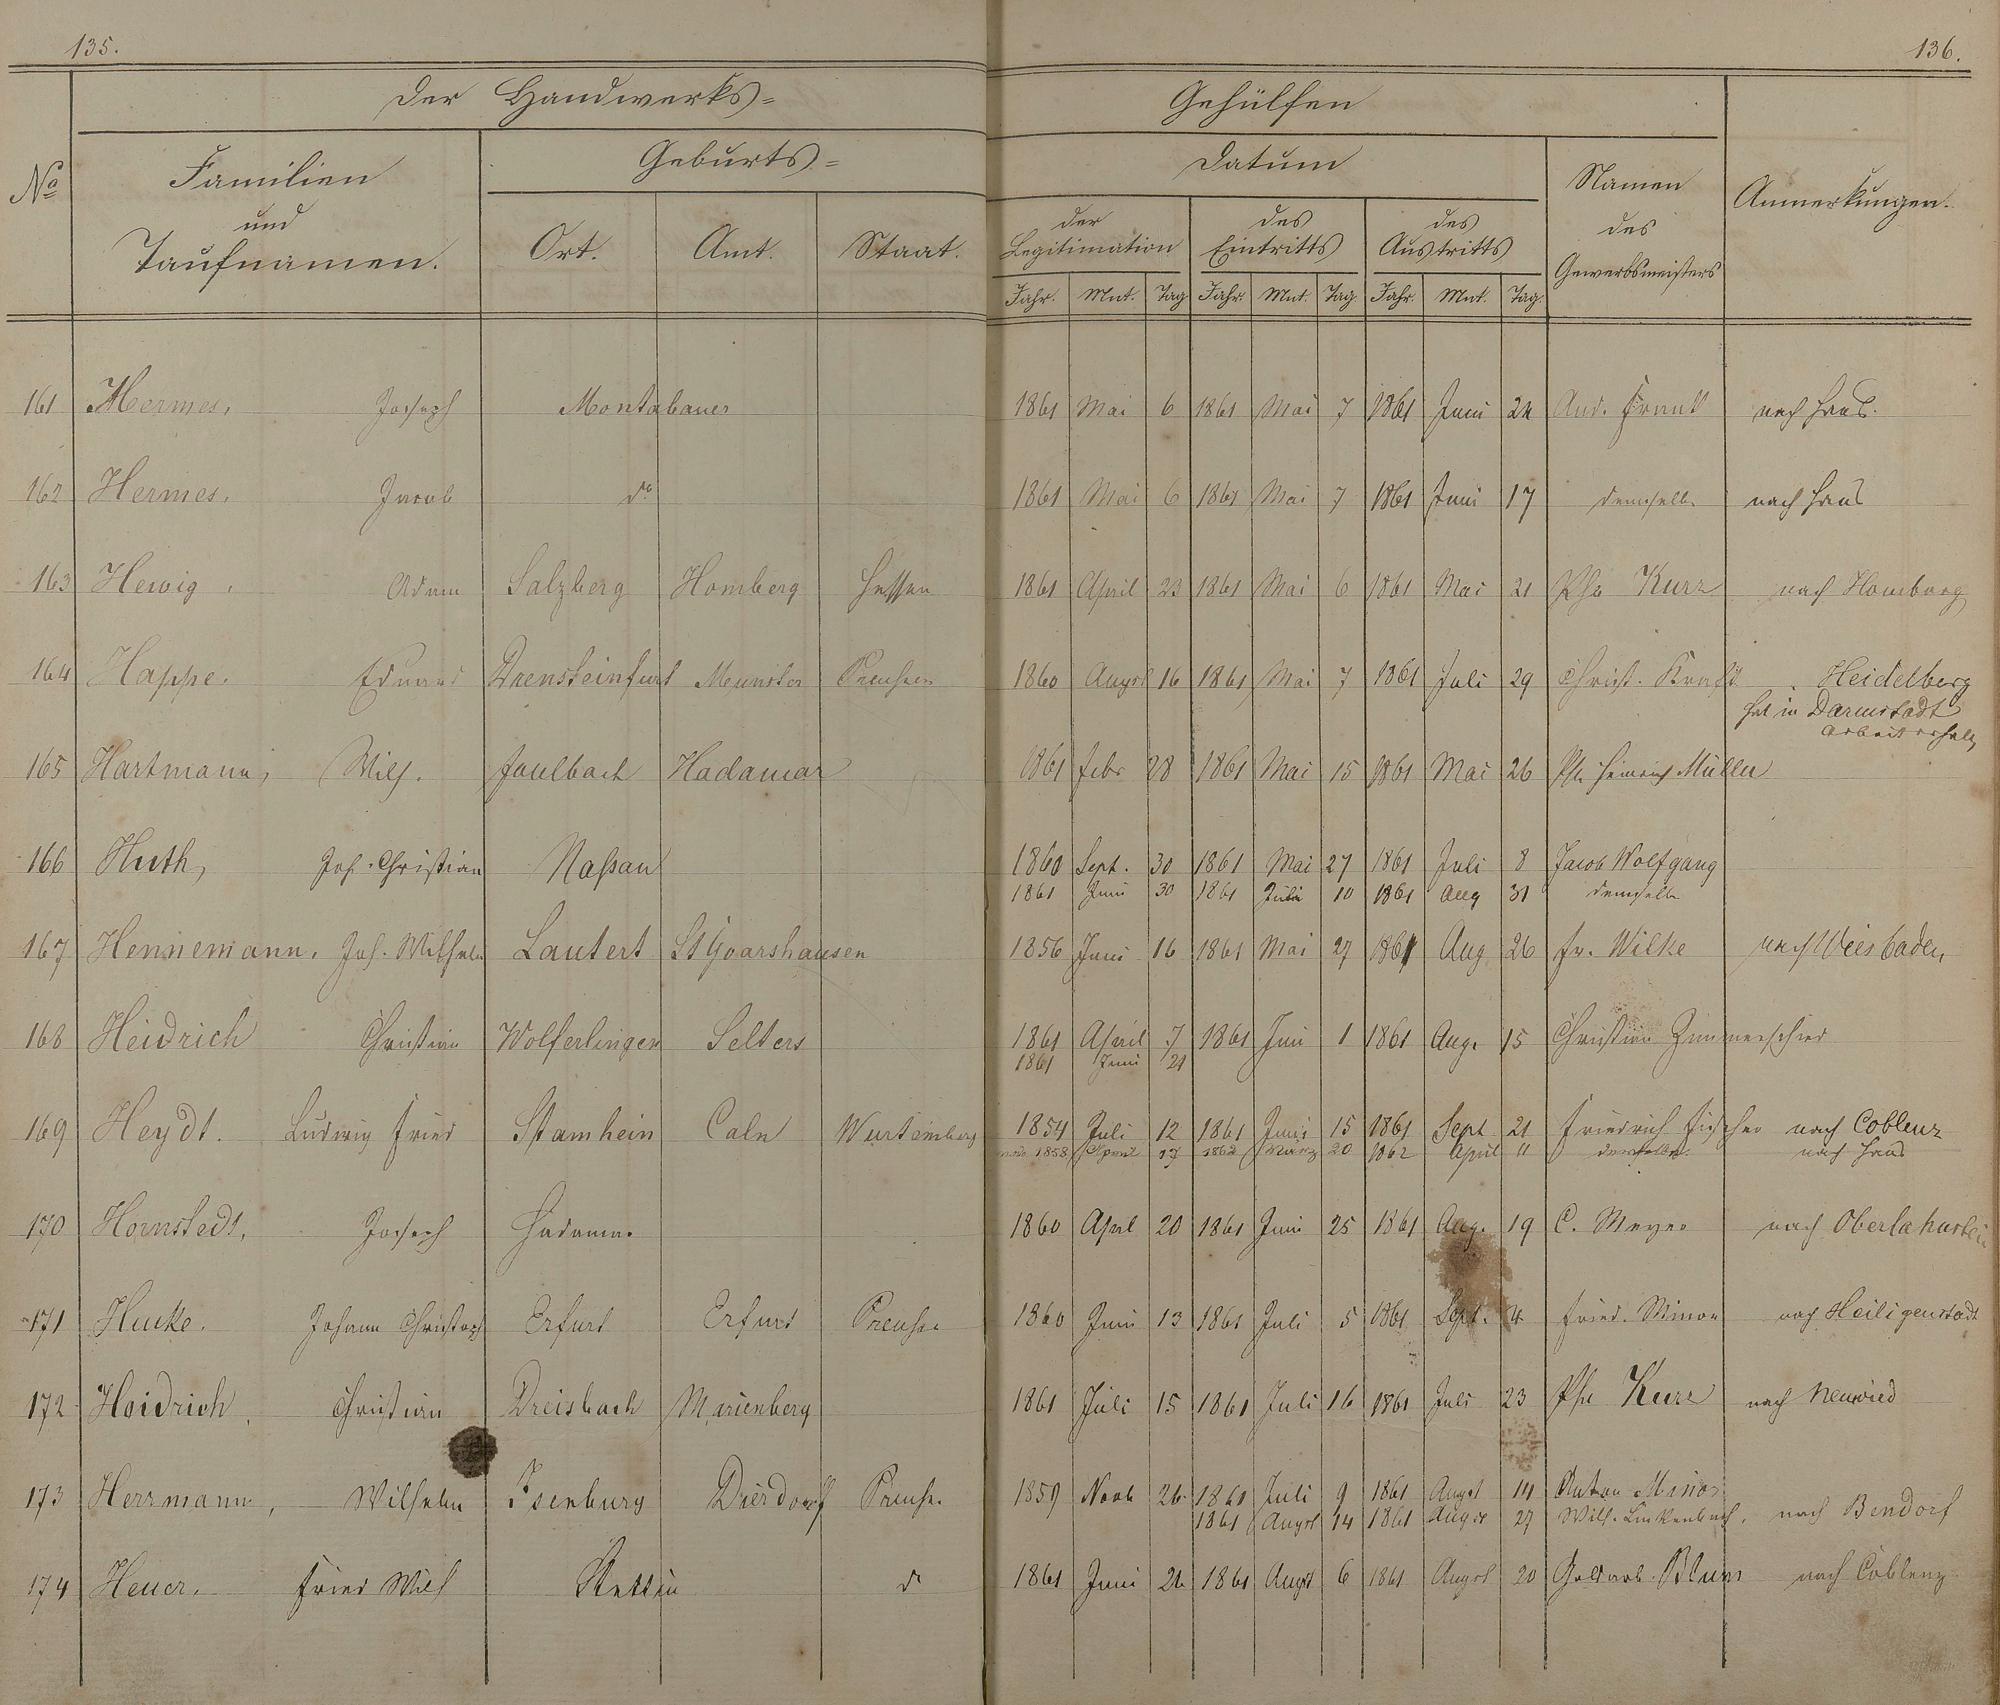 135.
136.
Der Handwerks=
Gehülfen
No
Familien
und
Taufnamen.
Geburts=
Ort. Amt. Staat.
Datum
der Legitimation
des Eintritts
des Austritts
Jahr. Mnt. Tag Jahr. Mnt. Tag Jahr. Mnt. Tag.
Namen
des
Gewerbsmeisters
Anmerkungen.
161 Hermes, Joseph Montabauer 1861 Mai 6 1861 Mai 7 1861 Juni 24 And. Frank nach Haus.
162 Hermes, Jacob do 1861 Mai 6 1861 Mai 7 1861 Juni 17 demselb. nach Haus
163 Hewig, Adam Salzberg Homberg Hessen 1861 April 23 1861 Mai 6 1861 Mai 21 Phe Kurz nach Homburg
164 Happe. Eduard Drensteinfurt Munster Preußen 1860 Augst 16 1861 Mai 7 1861 Juli 29 Christ. Kraft Heidelberg
hat in Darmstadt
Arbeit erhalt
165 Hartmann, Wilh. Faulbach Hadamar 1861 Febr 28 1861 Mai 15 1861 Mai 26 Ph. Heinrich Müller
166 Huth, Joh. Christian Naßau 1860 Sept. 30 1861 Mai 27 1861 Juli 8 Jacob Wolfgang
1861 Juni 30 1861 Juli 10 1861 Aug 31 demselb
167 Hennemann, Joh. Wilhelm Lautert St Goarshausen 1856 Juni 16 1861 Mai 27 1861 Aug 26 Fr. Wilke nach Wiesbaden,
168 Heidrich Christian Wolferlingen Selters 1861 April 7 1861 Juni 1 1861 Aug. 15 Christian Zimmerschied
1861 Juni 21
169 Heydt. Ludwig Fried Stamhein Caln Wurtemberg 1854 Juli 12 1861 Juni 15 1861 Sept 21 Friedrich Fischer nach Coblenz
1858 April 17 1862 März 20 1862 April 11 derselbe. nach Haus
170 Hornstedt, Joseph Hadamar 1860 April 20 1861 Juni 25 1861 Aug. 19 C. Meyer nach Oberlahnstein
171 Hucke. Johann Christoph Erfurt Erfurt Preußen 1860 Juni 13 1861 Juli 5 1861 Sept. 4 Fried. Minor nach Heiligenstadt
172 Heidrich, Christian Dreisbach Marienberg 1861 Juli 15 1861 Juli 16 1861 Juli 23 Phe Kurz nach Neuwied
173 Herrmann, Wilhelm Isenburg Dierdorff Preuße. 1859 Novb 26 1861 Juli 9 1861 Augst 14 Anton Minor
1861 Augst 14 1861 Augst 27 Wilh. Linkenbach, nach Bendorf
174 Heuer. Fried Wilh Stettin do 1861 Juni 26 1861 Augst 6 1861 Augst 20 Goldarb. Blum nach Coblenz